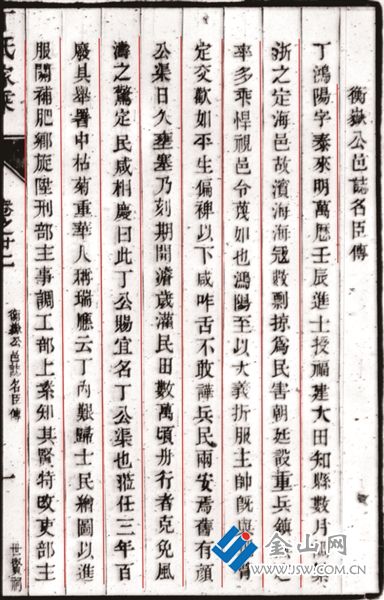 衡嶽公邑誌名臣傳
丁鴻陽字泰來明萬厯壬辰進士授福建大田知縣數月繁
浙之定海邑故濱海海冦數剽掠爲民害朝廷設重兵領之
率多乘悍視邑令茂如也鴻陽至以大義折服主帥旣與
定交歡如平生偏裨以下咸咋舌不敢譁兵民兩安焉舊有顔
公渠日久壅塞乃刻期開濬歲灌民田數萬頃舟行者克免風
濤之驚定民咸相慶曰此丁公賜宜名丁公渠也蒞任三年百
廢具舉署中枯菊重華人稱瑞應云丁內艱歸士民繪圖以進
服闋補肥鄉旋陞刑部主事調工部上素知其賢特改吏部主
氏家乘
卷之廿二
衡嶽公邑誌名臣傳
一
世賢祠
JSW 金山网
www.jsw.com.cn